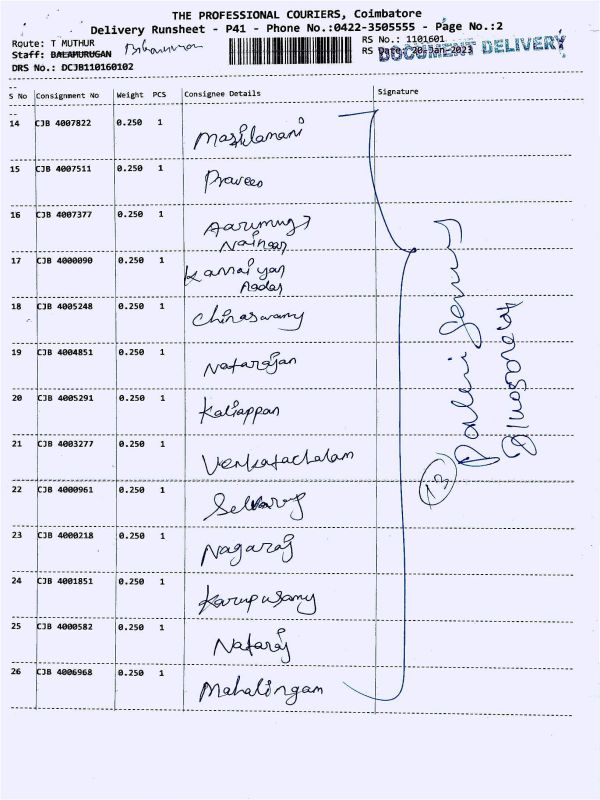 THE PROFESSIONAL COURIERS, Coimbatore
Delivery Runsheet - P41 - Phone No.:0422-3505555 - Page No.:2
Route: T MUTHUR
RS No.: 1101601
Staff: BALAMURUGAN
RS Date: 20-Jan-2023
DOCUMENT DELIVERY
DRS No.: DCJB110160102
S No Consignment No Weight PCS Consignee Details Signature
14 CJB 4007822 0.250 1 Masilamani
15 CJB 4007511 0.250 1 Praveen
16 CJB 4007377 0.250 1
17 CJB 4000090 0.250 1
18 CJB 4005248 0.250 1 Chinaswamy
19 CJB 4004851 0.250 1 Natarajan
20 CJB 4005291 0.250 1 Kaliappan
21 CJB 4003277 0.250 1 Venkatachalam
22 CJB 4000961 0.250 1 Selvaraj
23 CJB 4000218 0.250 1 Nagaraj
24 CJB 4001851 0.250 1 Karupusamy
25 CJB 4000582 0.250 1 Nataraj
26 CJB 4006968 0.250 1 Mahalingam
13